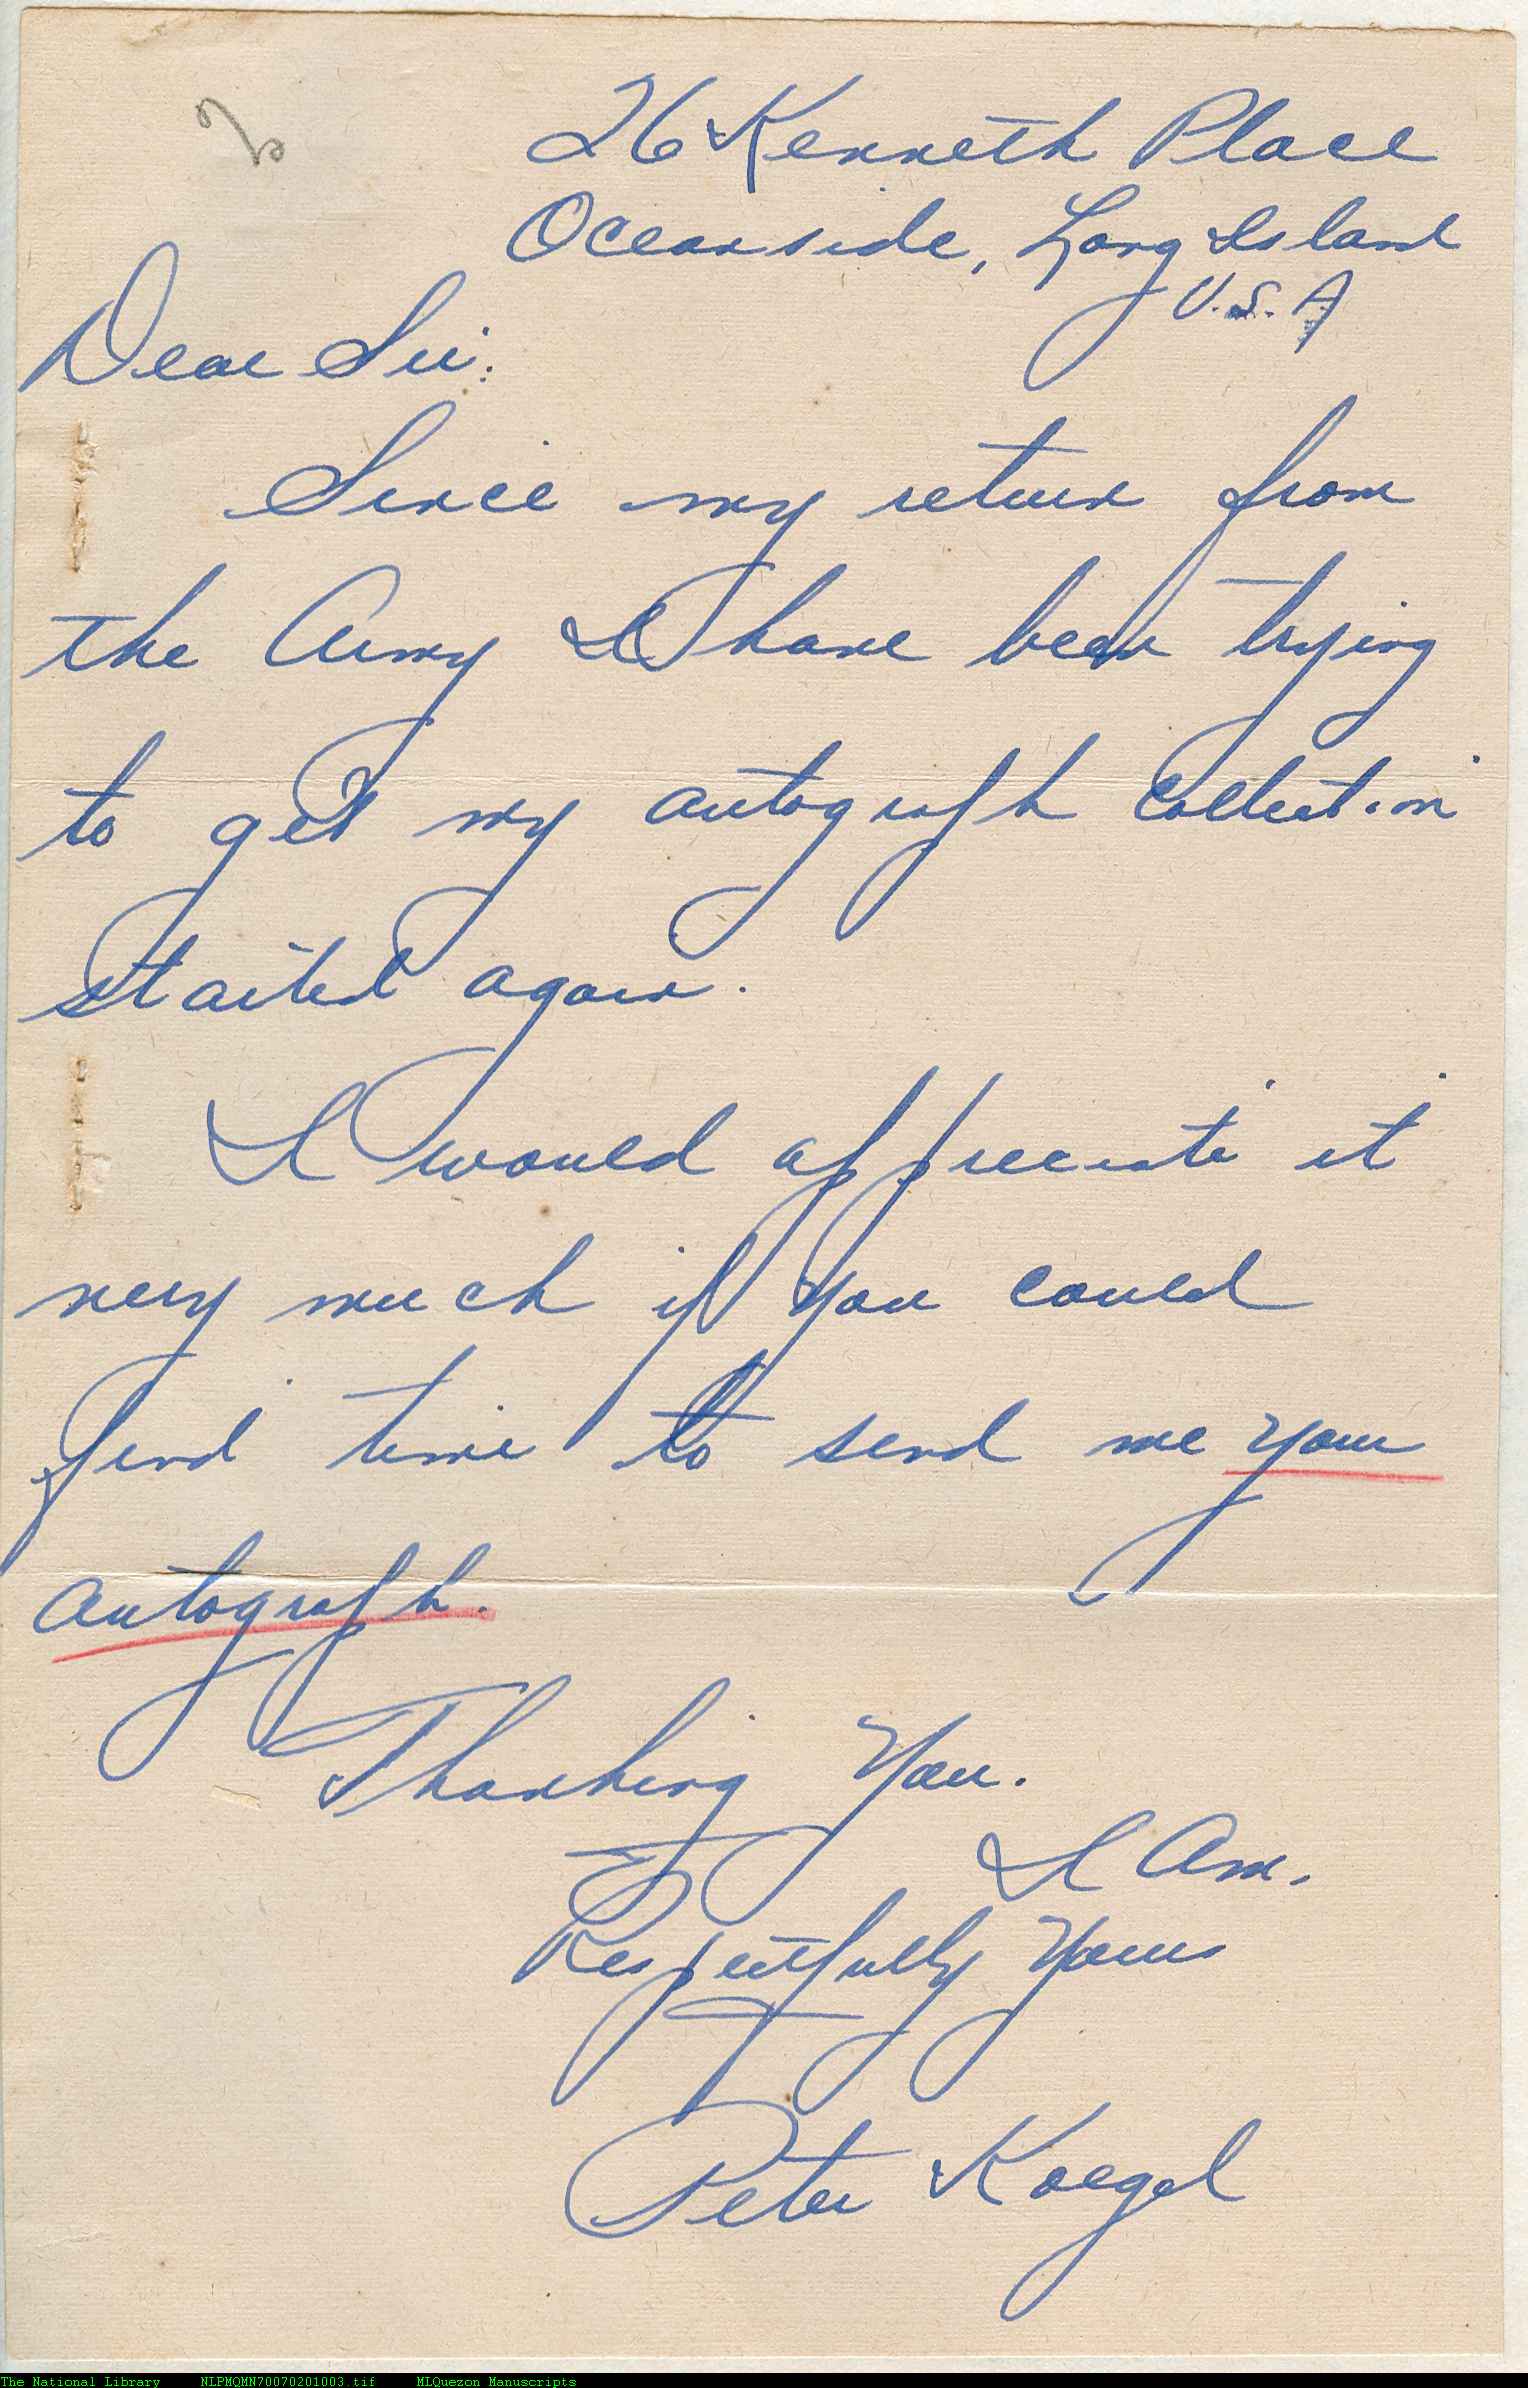 26 Kenneth Place
Oceanside, Long Island
U.S.A
Dear Sir:
Since my return from
the Army I have been trying
to get my autograph collection
started again.
I would appreciate it
very much if you could
find time to send me your
autograph.
Thanking You.
I Am,
Respectfully Yours
Peter Koegel
The National Library NLPMQMN70070201003.tif MLQuezon Manuscripts